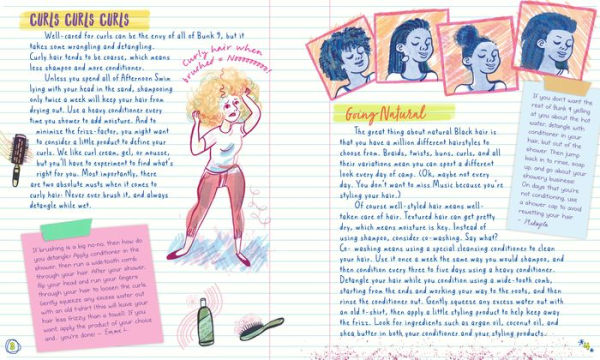 CURLS CURLS CURLS
Well-cared for curls can be the envy of all of Bunk 9, but it
takes some wrangling and detangling.
Curly hair tends to be coarse, which means
less shampoo and more conditioner.
Unless you spend all of Afternoon Swim
lying with your head in the sand, shampooing
only twice a week will keep your hair from
drying out. Use a heavy conditioner every
time you shower to add moisture. And to
minimize the frizz-factor, you might want
to consider a little product to define your
curls. We like curl cream, gel, or mousse,
but you'll have to experiment to find what's
right for you. Most importantly, there
are two absolute musts when it comes to
curly hair: Never ever brush it, and always
detangle while wet.
Curly hair when
brushed = NOOOOOOOO!
If brushing is a big no-no, then how do
you detangle? Apply conditioner in the
shower, then run a wide-tooth comb
through your hair. After your shower,
flip your head and run your fingers
through your hair to loosen the curls.
Gently squeeze any excess water out
with an old t-shirt (this will leave your
hair less frizzy than a towel). If you
want, apply the product of your choice
and... you're done! — Emma L.
8
Going Natural
The great thing about natural Black hair is
that you have a million different hairstyles to
choose from. Braids, twists, buns, curls, and all
their variations mean you can sport a different
look every day of camp. (Ok, maybe not every
day. You don't want to miss Music because you're
styling your hair.)
Of course well-styled hair means well-
taken care of hair. Textured hair can get pretty
dry, which means moisture is key. Instead of
using shampoo, consider co-washing. Say what?
Co-washing means using a special cleansing conditioner to clean
your hair. Use it once a week the same way you would shampoo, and
then condition every three to five days using a heavy conditioner.
Detangle your hair while you condition using a wide-tooth comb,
starting from the ends and working your way to the roots, and then
rinse the conditioner out. Gently squeeze any excess water out with
an old t-shirt, then apply a little styling product to help keep away
the frizz. Look for ingredients such as argan oil, coconut oil, and
shea butter in both your conditioner and your styling products.
If you don't want the
rest of Bunk 9 yelling
at you about the hot
water, detangle with
conditioner in your
hair, but out of the
shower. Then jump
back in to rinse, soap
up, and go about your
showery business!
On days that you're
not conditioning, use
a shower cap to avoid
rewetting your hair.